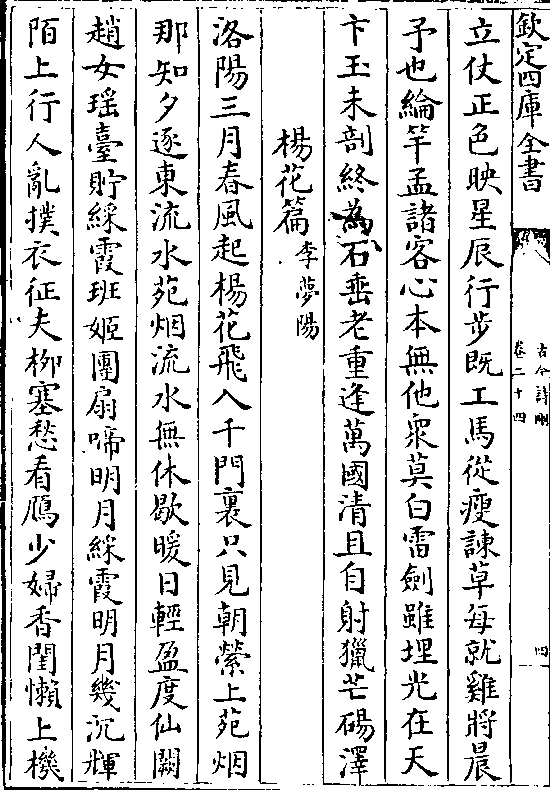 欽定四庫全書
古今詩刪
卷二十四
四
立仗正色映星辰行步既工馬從瘦諫草每就雞將晨
予也綸竿孟諸客心本無他衆莫白雷劍雖埋光在天
卞玉未剖終為石垂老重逢萬國清且自射獵芒碭澤
楊花篇 李夢陽
洛陽三月春風起楊花飛入千門裏只見朝縈上苑烟
那知夕逐東流水苑烟流水無休歇暖日輕盈度仙闕
趙女瑶臺貯綵霞班姬團扇啼明月綵霞明月幾沉輝
陌上行人亂撲衣征夫栁塞愁看鴈少婦香閨懶上機